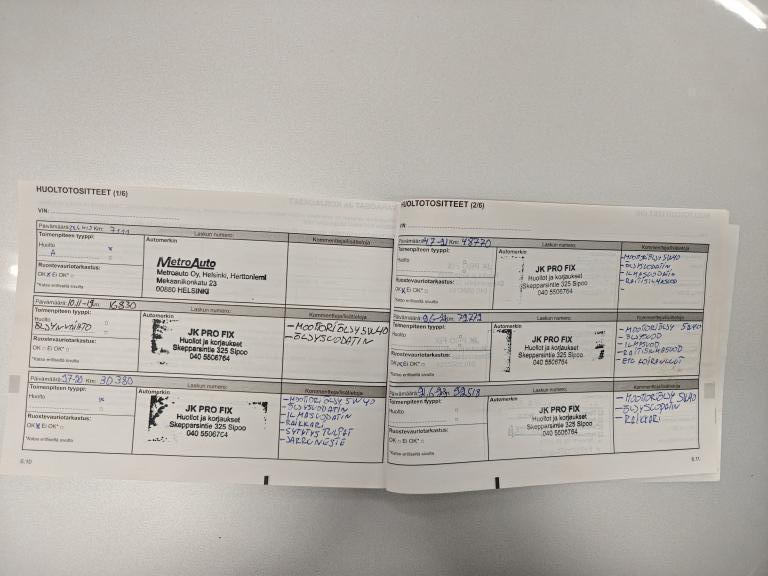 HUOLTOTOSITTEET (1/6)
VIN:
Päivämäärä: Km: 7111
Laskun numero:
Kommentteja/lisätietoja
Toimenpiteen tyyppi:
Huolto x
A
Ruostevauriotarkastus:
OK x Ei OK*
*Katso erilliseltä sivulta
Automerkin
MetroAuto
Metroauto Oy, Helsinki, Herttoniemi
Mekaanikonkatu 23
00880 HELSINKI
Päivämäärä: 10.11-19 Km: 16830
Laskun numero:
Kommentteja/lisätietoja
Toimenpiteen tyyppi:
Huolto
ÖLJYNVAIHTO
Ruostevauriotarkastus:
OK Ei OK*
*Katso erilliseltä sivulta
Automerkin
JK PRO FIX
Huollot ja korjaukset
Skepparsintie 325 Sipoo
040 5506764
-MOOTORIÖLJY 5W40
-ÖLJYSUODATIN
Päivämäärä: Km: 30380
Laskun numero:
Kommentteja/lisätietoja
Toimenpiteen tyyppi:
Huolto x
Ruostevauriotarkastus:
OK x Ei OK*
*Katso erilliseltä sivulta
Automerkin
JK PRO FIX
Huollot ja korjaukset
Skepparsintie 325 Sipoo
040 5506764
-MOOTORIÖLJY 5W40
-ÖLJYSUODATIN
-ILMASUODATIN
-RAIKKARI
-SYTYTYSTULPAT
-JARRUNESTE
6.10
HUOLTOTOSITTEET (2/6)
Päivämäärä: Km: 48770
Laskun numero:
Kommentteja/lisätietoja
Toimenpiteen tyyppi:
Huolto
Ruostevauriotarkastus:
OK x Ei OK*
*Katso erilliseltä sivulta
Automerkin
JK PRO FIX
Huollot ja korjaukset
Skepparsintie 325 Sipoo
040 5506764
-MOOTORIÖLJY 5W40
-ÖLJYSUODATIN
-ILMASUODATIN
-RAITISILMASUOD
Päivämäärä: Km:
Laskun numero:
Kommentteja/lisätietoja
Toimenpiteen tyyppi:
Huolto
Ruostevauriotarkastus:
OK x Ei OK*
*Katso erilliseltä sivulta
Automerkin
JK PRO FIX
Huollot ja korjaukset
Skepparsintie 325 Sipoo
040 5506764
-MOOTORIÖLJY 5W40
-ÖLJYSUOD
-ILMASUOD
-RAITISILMASUOD
-ETU KOIRANLUUT
Päivämäärä: Km:
Laskun numero:
Kommentteja/lisätietoja
Toimenpiteen tyyppi:
Huolto
Ruostevauriotarkastus:
OK Ei OK*
*Katso erilliseltä sivulta
Automerkin
JK PRO FIX
Huollot ja korjaukset
Skepparsintie 325 Sipoo
040 5506764
-MOOTORIÖLJY 5W40
-ÖLJYSUODATIN
-RAIKKARI
6.11